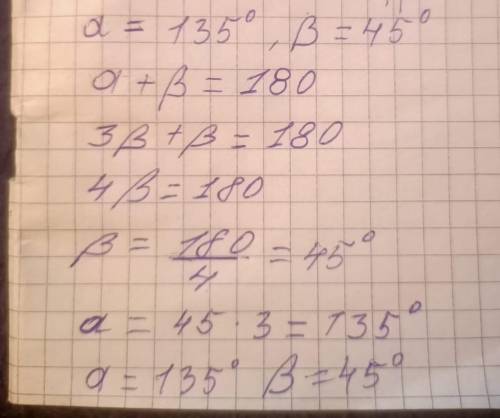 α = 135°, β = 45°
α + β = 180
3β + β = 180
4β = 180
β = 180/4 = 45°
α = 45 · 3 = 135°
α = 135° β = 45°